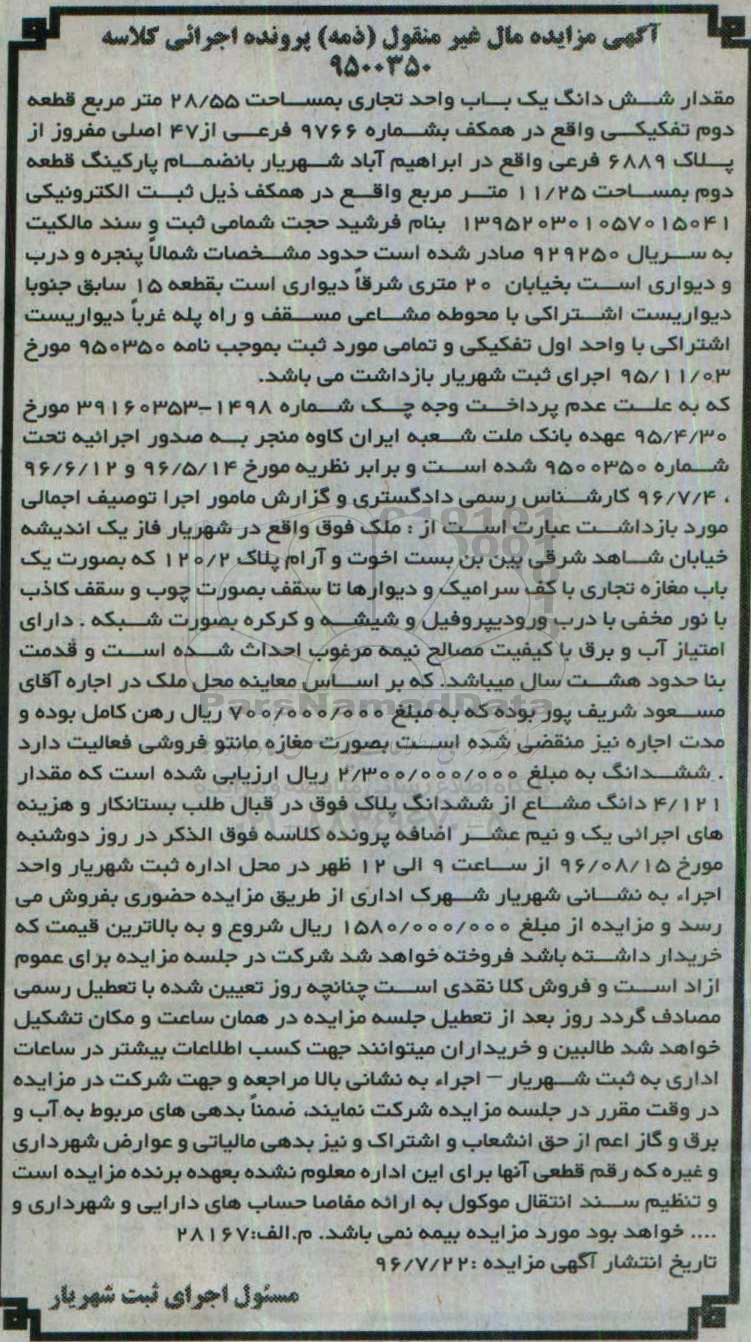 آگهی مزایده مال غیر منقول (ذمه) پرونده اجرائی کلاسه
۹۵۰۰۳۵۰
مقدار شش دانگ یک باب واحد تجاری بمساحت ۲۸/۵۵ متر مربع قطعه
دوم تفکیکی واقع در همکف بشماره ۹۷۶۶ فرعی از۴۷ اصلی مفروز از
پلاک ۶۸۸۹ فرعی واقع در ابراهیم آباد شهریار بانضمام پارکینگ قطعه
دوم بمساحت ۱۱/۲۵ متر مربع واقع در همکف ذیل ثبت الکترونیکی
۱۳۹۵۲۰۳۰۱۰۵۷۰۱۵۰۴۱ بنام فرشید حجت شمامی ثبت و سند مالکیت
به سریال ۹۲۹۲۵۰ صادر شده است حدود مشخصات شمالاً پنجره و درب
و دیواری است بخیابان ۲۰ متری شرقاً دیواری است بقطعه ۱۵ سابق جنوبا
دیواریست اشتراکی با محوطه مشاعی مسقف و راه پله غرباً دیواریست
اشتراکی با واحد اول تفکیکی و تمامی مورد ثبت بموجب نامه ۹۵۰۳۵۰ مورخ
۹۵/۱۱/۰۳ اجرای ثبت شهریار بازداشت می باشد.
که به علت عدم پرداخت وجه چک شماره ۱۴۹۸-۳۹۱۶۰۳۵۳ مورخ
۹۵/۴/۳۰ عهده بانک ملت شعبه ایران کاوه منجر به صدور اجرائیه تحت
شماره ۹۵۰۰۳۵۰ شده است و برابر نظریه مورخ ۹۶/۵/۱۴ و ۹۶/۶/۱۲
، ۹۶/۷/۴ کارشناس رسمی دادگستری و گزارش مامور اجرا توصیف اجمالی
مورد بازداشت عبارت است از : ملک فوق واقع در شهریار فاز یک اندیشه
خیابان شاهد شرقی بین بن بست اخوت و آرام پلاک ۱۲۰/۲ که بصورت یک
باب مغازه تجاری با کف سرامیک و دیوارها تا سقف بصورت چوب و سقف کاذب
با نور مخفی با درب ورودیپروفیل و شیشه و کرکره بصورت شبکه . دارای
امتیاز آب و برق با کیفیت مصالح نیمه مرغوب احداث شده است و قدمت
بنا حدود هشت سال میباشد. که بر اساس معاینه محل ملک در اجاره آقای
مسعود شریف پور بوده که به مبلغ ۷۰۰/۰۰۰/۰۰۰ ریال رهن کامل بوده و
مدت اجاره نیز منقضی شده است بصورت مغازه مانتو فروشی فعالیت دارد
. ششدانگ به مبلغ ۲/۳۰۰/۰۰۰/۰۰۰ ریال ارزیابی شده است که مقدار
۴/۱۲۱ دانگ مشاع از ششدانگ پلاک فوق در قبال طلب بستانکار و هزینه
های اجرائی یک و نیم عشر اضافه پرونده کلاسه فوق الذکر در روز دوشنبه
مورخ ۹۶/۰۸/۱۵ از ساعت ۹ الی ۱۲ ظهر در محل اداره ثبت شهریار واحد
اجراء به نشانی شهریار شهرک اداری از طریق مزایده حضوری بفروش می
رسد و مزایده از مبلغ ۱۵۸۰/۰۰۰/۰۰۰ ریال شروع و به بالاترین قیمت که
خریدار داشته باشد فروخته خواهد شد شرکت در جلسه مزایده برای عموم
ازاد است و فروش کلا نقدی است چنانچه روز تعیین شده با تعطیل رسمی
مصادف گردد روز بعد از تعطیل جلسه مزایده در همان ساعت و مکان تشکیل
خواهد شد طالبین و خریداران میتوانند جهت کسب اطلاعات بیشتر در ساعات
اداری به ثبت شهریار – اجراء به نشانی بالا مراجعه و جهت شرکت در مزایده
در وقت مقرر در جلسه مزایده شرکت نمایند، ضمناً بدهی های مربوط به آب و
برق و گاز اعم از حق انشعاب و اشتراک و نیز بدهی مالیاتی و عوارض شهرداری
و غیره که رقم قطعی آنها برای این اداره معلوم نشده بعهده برنده مزایده است
و تنظیم سند انتقال موکول به ارائه مفاصا حساب های دارایی و شهرداری و
.... خواهد بود مورد مزایده بیمه نمی باشد. م.الف:۲۸۱۶۷
تاریخ انتشار آگهی مزایده :۹۶/۷/۲۲
مسئول اجرای ثبت شهریار
ParsNamadData